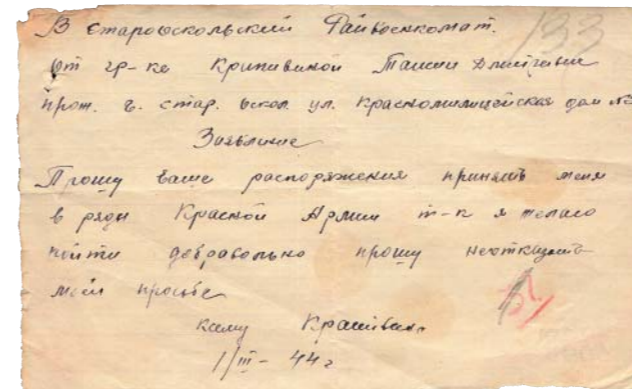 В Старооскольский Райвоенкомат.
133
от гр-ке Крапивиной Таисии Дмитревне
прож. г. стар. оскол ул. Красномилицейская дом №
Заявление
Прошу ваше распоряжения принять меня
в ряды Красной Армии т-к я желаю
пойти добравольно прошу неотказать
моей просьбе
к сему Крапивин
1/III - 44 г